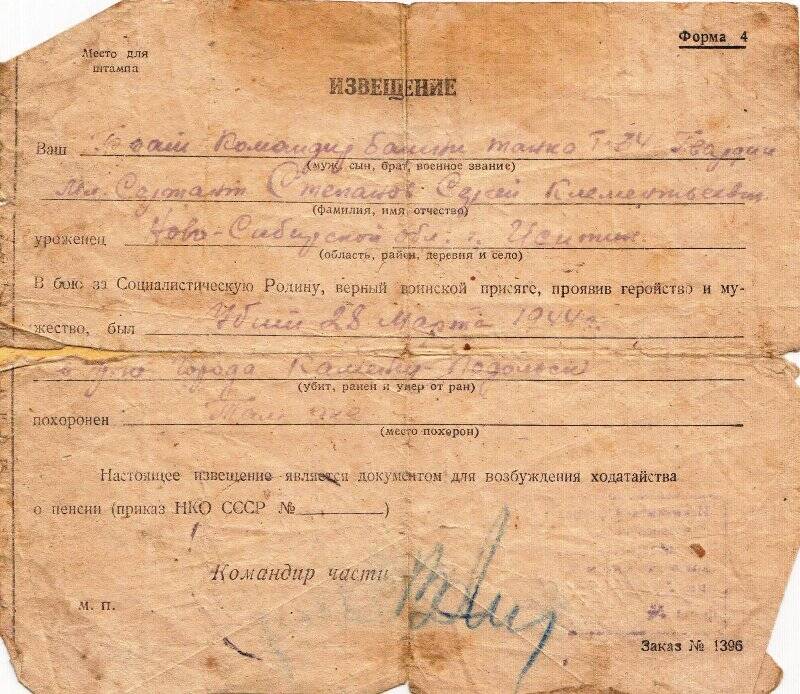 Форма 4
Место для
штампа
ИЗВЕЩЕНИЕ
Ваш брат Командир башни танка Т-34 Гвардии
(муж, сын, брат, военное звание)
Мл. Сержант Степанов Сергей Клементьевич
(фамилия, имя, отчество)
уроженец Ново-Сибирской обл. г.
(область, район, деревня и село)
В бою за Социалистическую Родину, верный воинской присяге, проявив геройство и му-
жество, был Убит 28 марта 1944 г.
города Каменец-Подольск
(убит, ранен и умер от ран)
похоронен Там же
(место похорон)
Настоящее извещение является документом для возбуждения ходатайства
о пенсии (приказ НКО СССР № )
Командир части
м. п.
Заказ № 1396